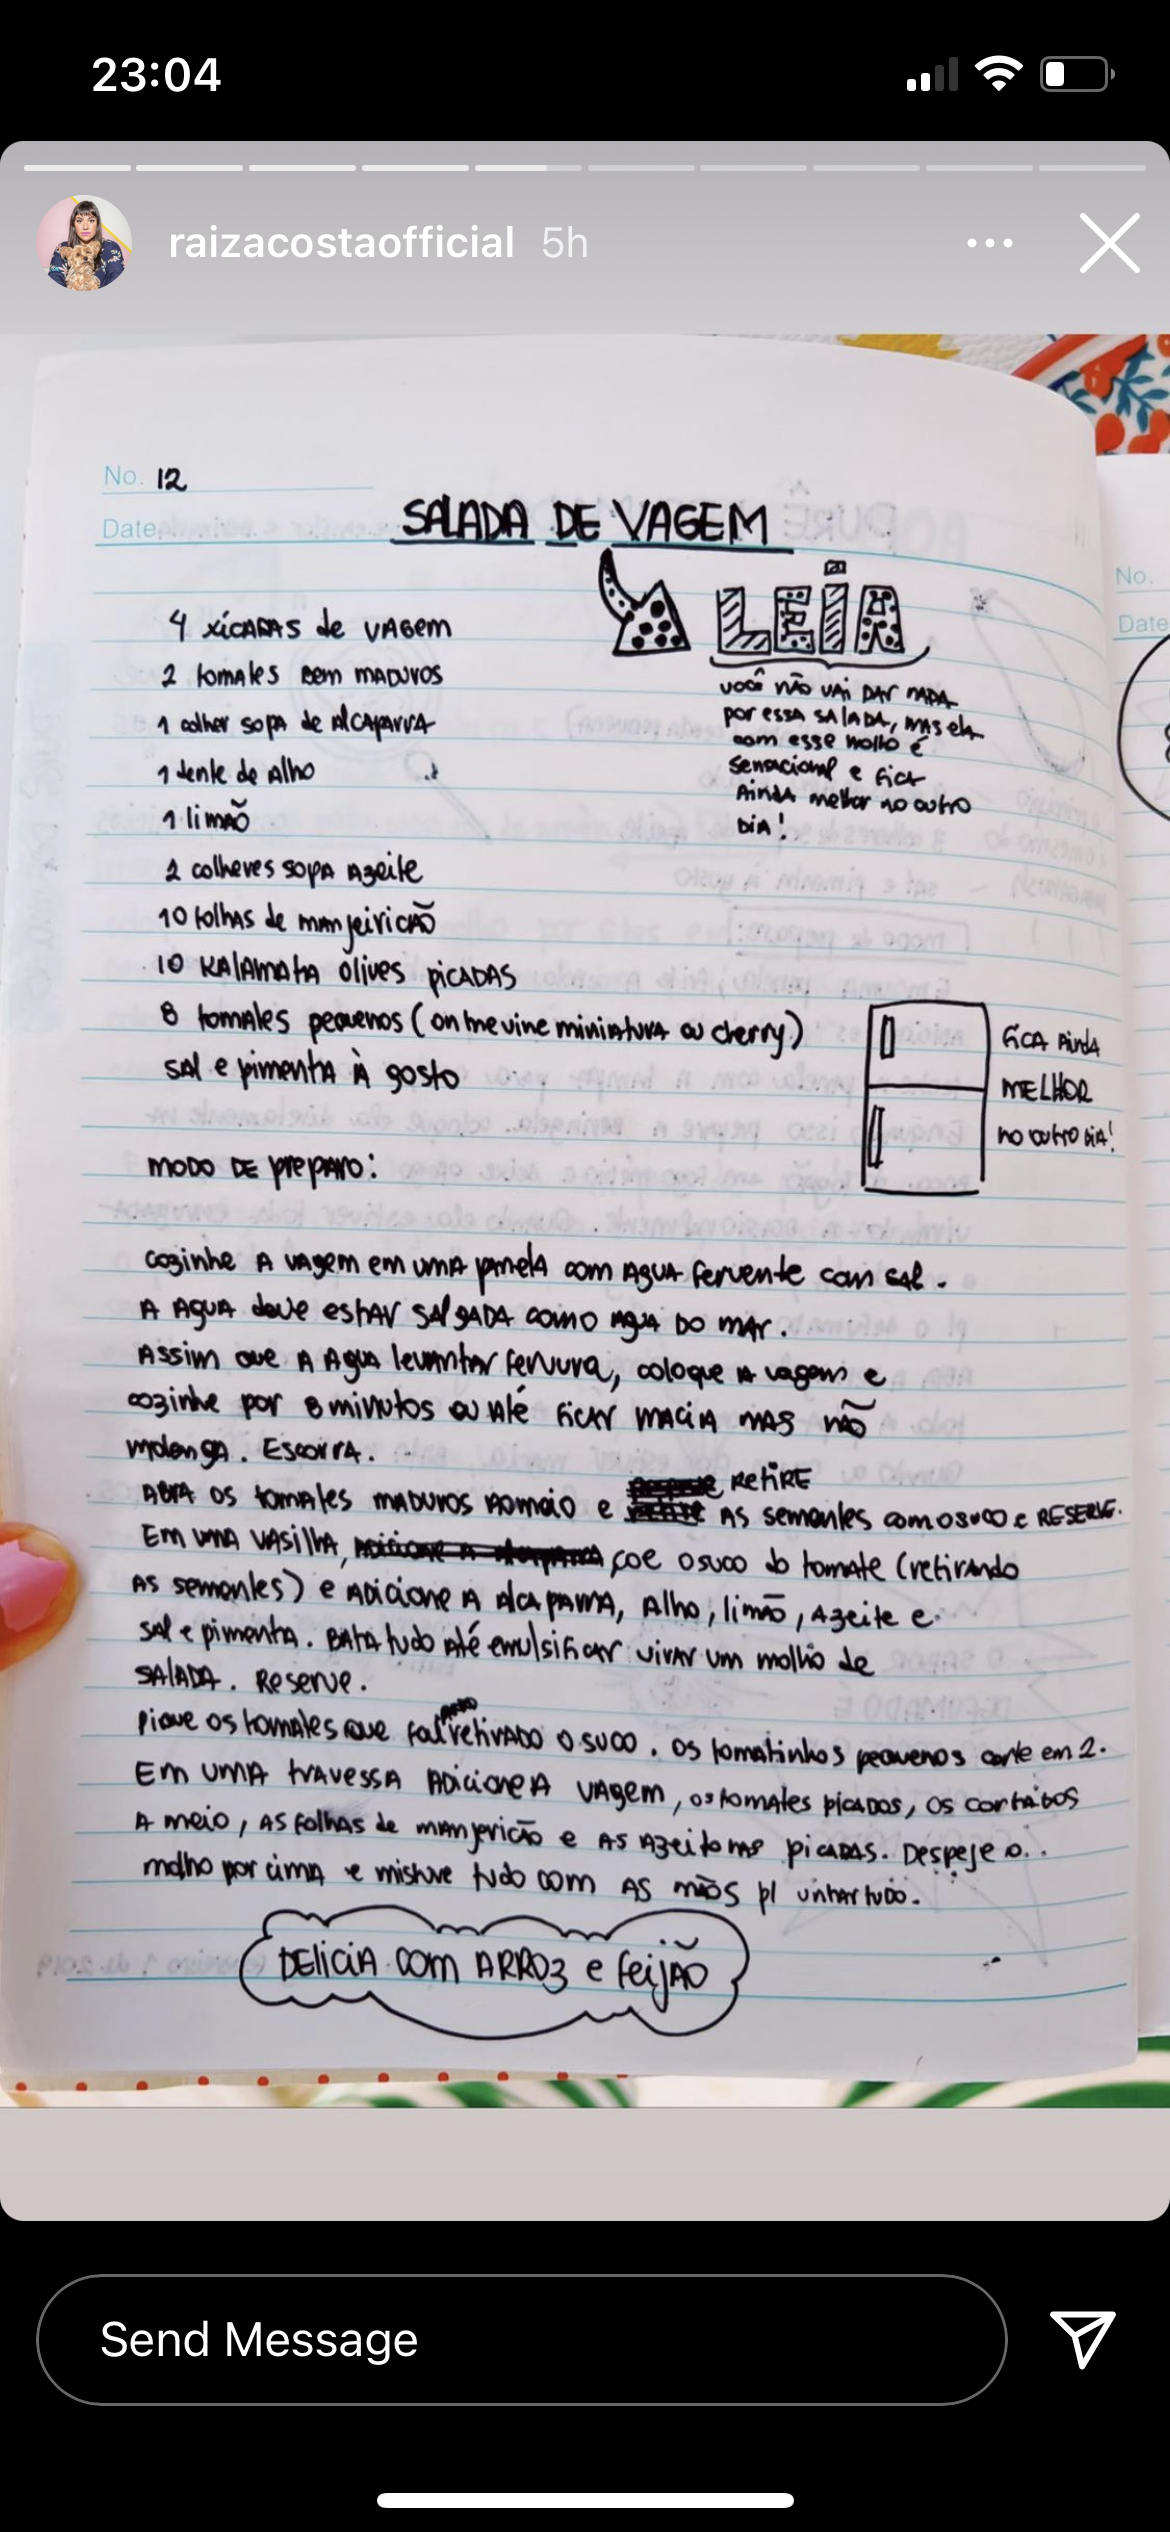 23:04
raizacostaofficial 5h
No. 12
Date
SALADA DE VAGEM
LEIA
4 xícaras de vagem
2 tomates bem maduros
1 colher sopa de alcaparra
1 dente de alho
1 limão
2 colheres sopa azeite
10 folhas de manjeiricão
10 kalamata olives picadas
8 tomates pequenos (on the vine miniatura ou cherry)
sal e pimenta à gosto
você não vai dar nada
por essa salada, mas ela
com esse molho é
sensacional e fica
ainda melhor no outro
dia!
fica ainda
MELHOR
no outro dia!
No.
Date
modo de preparo:
cozinhe a vagem em uma panela com agua fervente com sal.
A agua deve estar salgada como agua do mar.
Assim que a agua levantar fervura, coloque a vagem e
cozinhe por 8 minutos ou até ficar macia mas não
molenga. Escorra.
Abra os tomates maduros ao meio e RETIRE as sementes com o suco e RESERVE.
Em uma vasilha, coe o suco do tomate (retirando
as sementes) e adicione a alcaparra, alho, limão, azeite e
sal e pimenta. Bata tudo até emulsificar virar um molho de
salada. Reserve.
Pique os tomates que foi retirado o suco. Os tomatinhos pequenos corte em 2.
Em uma travessa adicione a vagem, os tomates picados, os cortados
a meio, as folhas de manjericão e as azeitonas picadas. Despeje o
molho por cima e misture tudo com as mãos p/ untar tudo.
DELICIA com ARROZ e feijão
Send Message